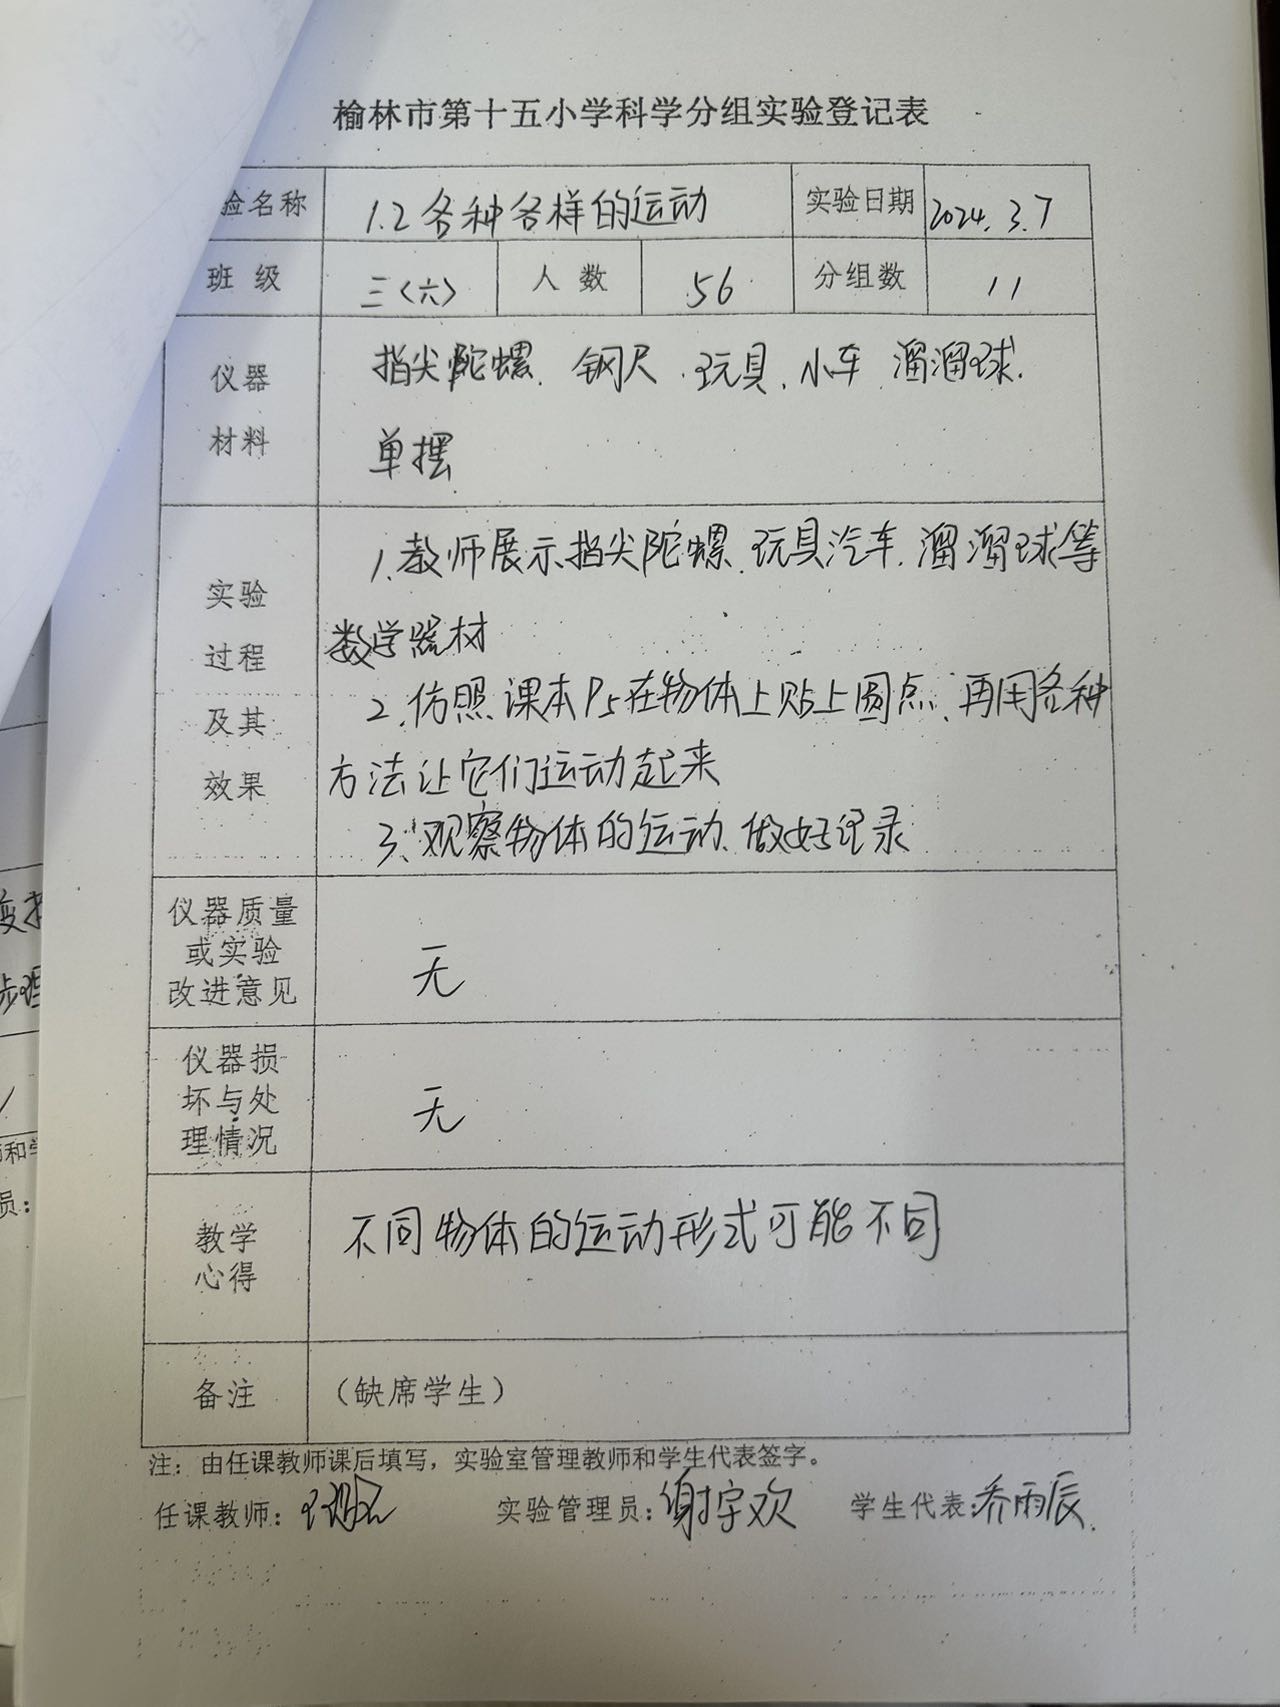 榆林市第十五小学科学分组实验登记表
验名称 1.2各种各样的运动 实验日期 2024.3.7
班级 三〈六〉 人数 56 分组数 11
仪器材料 指尖陀螺、钢尺、玩具、小车、溜溜球.
单摆
实验过程及其效果
1.教师展示指尖陀螺、玩具汽车、溜溜球等
数学器材
2.仿照课本P5在物体上贴上圆点、再用各种
方法让它们运动起来
3、观察物体的运动、做好记录
仪器质量
或实验
改进意见
无
仪器损
坏与处
理情况
无
教学
心得
不同物体的运动形式可能不同
备注 （缺席学生）
注：由任课教师课后填写，实验室管理教师和学生代表签字。
任课教师： 实验管理员：谢宇欢 学生代表：乔雨辰